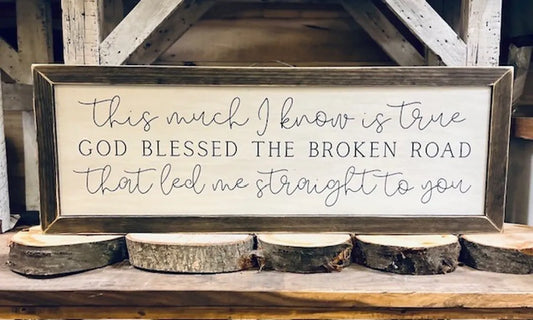 this much I know is true
GOD BLESSED THE BROKEN ROAD
that led me straight to you